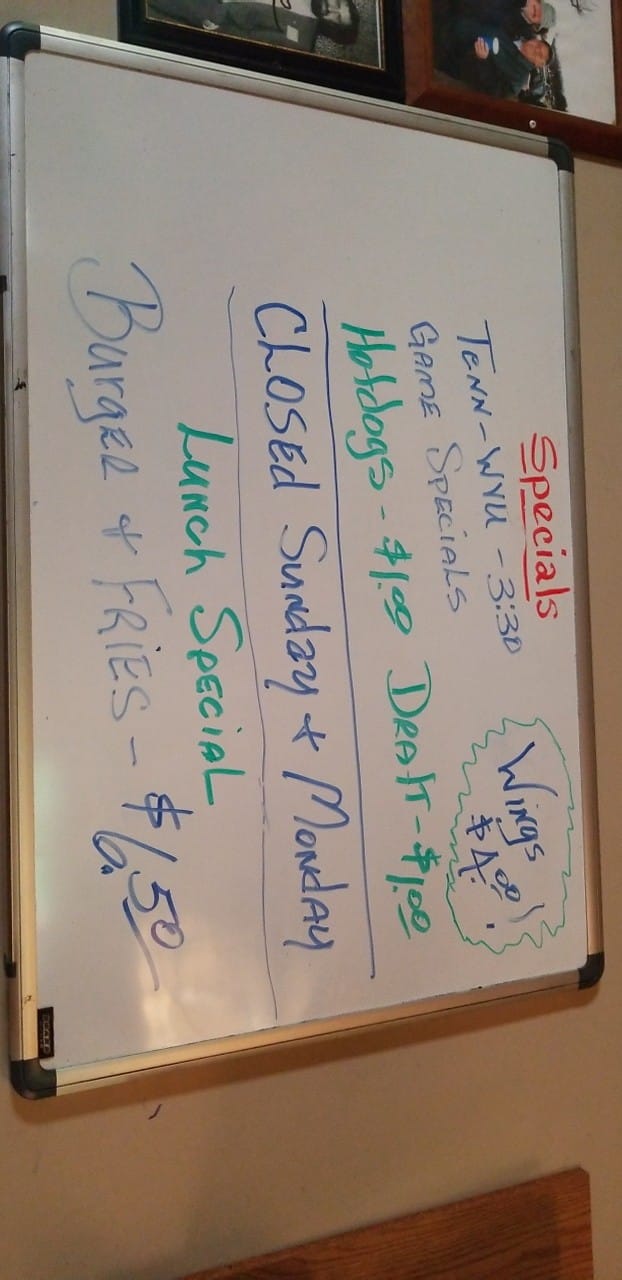 Specials
TENN-WVU-3:30
GAME SPECIALS
Wings
$4.00!
Hotdogs-$1.00 DRAft-$1.00
CLOSED Sunday + MONDAY
LUNCH SPECIAL
BurgER & FRIES-$6.50